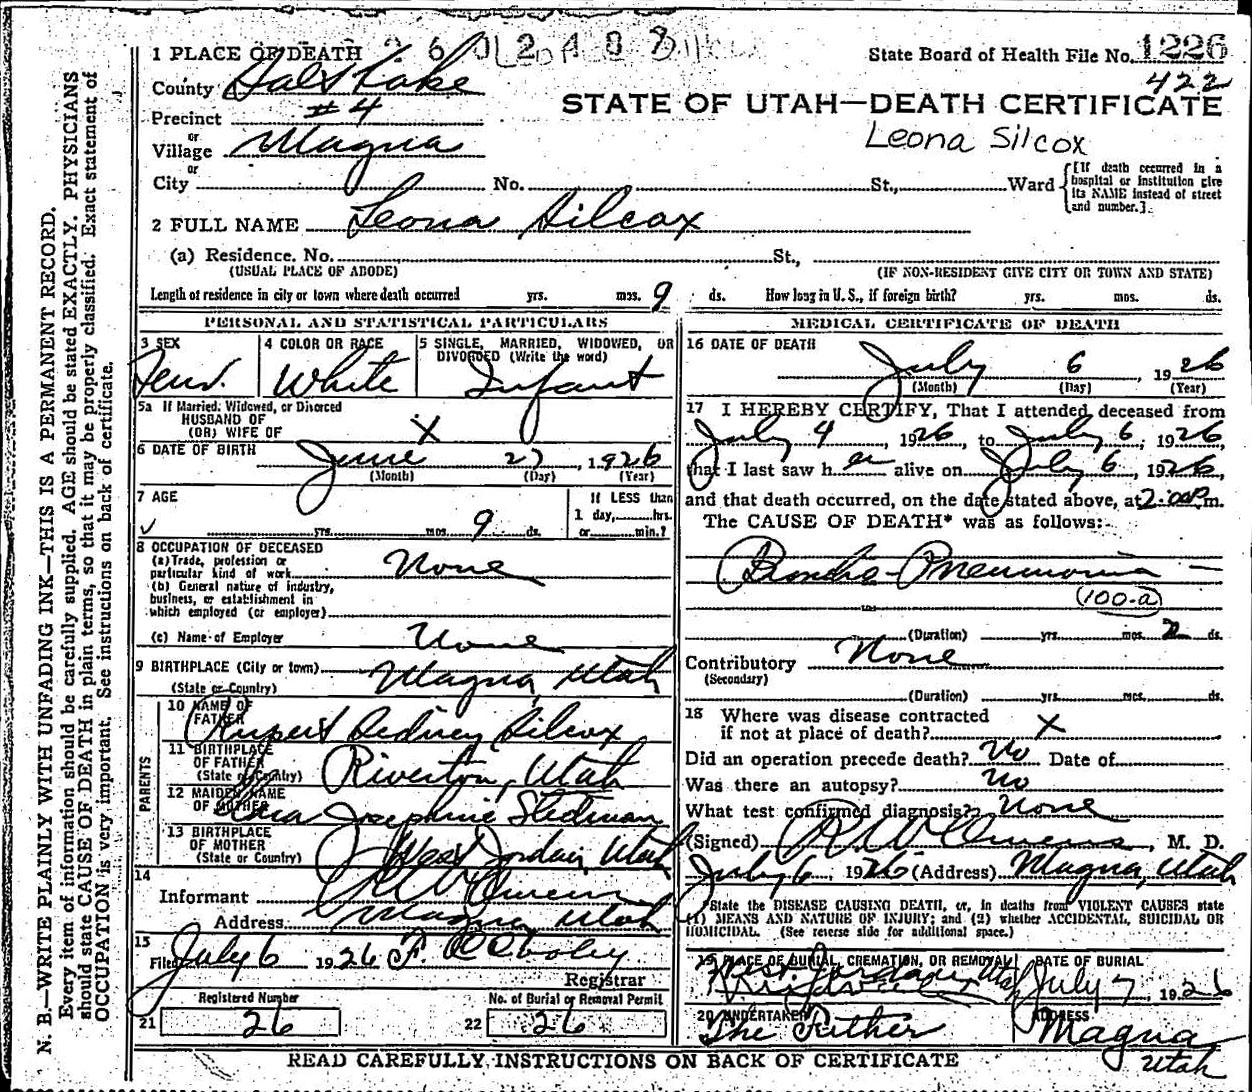 1 PLACE OF DEATH 2 6 0 2 4 8 7
State Board of Health File No. 1226
422
County Salt Lake
STATE OF UTAH—DEATH CERTIFICATE
Precinct #4
Leona Silcox
or
Village Magna
or
City No. St., Ward [If death occurred in a hospital or institution give its NAME instead of street and number.]
2 FULL NAME Leona Silcox
(a) Residence. No. St.,
(USUAL PLACE OF ABODE) (IF NON-RESIDENT GIVE CITY OR TOWN AND STATE)
Length of residence in city or town where death occurred yrs. mos. 9 ds. How long in U. S., if foreign birth? yrs. mos. ds.
PERSONAL AND STATISTICAL PARTICULARS
3 SEX
Fem.
4 COLOR OR RACE
White
5 SINGLE, MARRIED, WIDOWED, OR
DIVORCED (Write the word)
Infant
5a If Married, Widowed, or Divorced
HUSBAND OF
(OR) WIFE OF X
6 DATE OF BIRTH June 27, 1926
(Month) (Day) (Year)
7 AGE
yrs. mos. 9 ds.
If LESS than
1 day, hrs.
or min.?
8 OCCUPATION OF DECEASED
(a) Trade, profession or
particular kind of work None
(b) General nature of industry,
business, or establishment in
which employed (or employer)
(c) Name of Employer None
9 BIRTHPLACE (City or town) Magna, Utah
(State or Country)
PARENTS
10 NAME OF
FATHER Rupert Sidney Silcox
11 BIRTHPLACE
OF FATHER
(State or Country) Riverton, Utah
12 MAIDEN NAME
OF MOTHER Josephine Stedman
13 BIRTHPLACE
OF MOTHER
(State or Country) West Jordan, Utah
14
Informant
Address Magna Utah
15
Filed July 6 1926 F.
Registrar
Registered Number
21 26
No. of Burial or Removal Permit
22 26
MEDICAL CERTIFICATE OF DEATH
16 DATE OF DEATH
July 6, 1926
(Month) (Day) (Year)
17 I HEREBY CERTIFY, That I attended deceased from
July 4, 1926, to July 6, 1926,
that I last saw her alive on July 6, 1926,
and that death occurred, on the date stated above, at 2:00 P.m.
The CAUSE OF DEATH* was as follows:
Broncho-Pneumonia —
(100-a)
(Duration) yrs. mos. 2 ds.
Contributory None
(Secondary)
(Duration) yrs. mos. ds.
18 Where was disease contracted
if not at place of death? X
Did an operation precede death? No Date of
Was there an autopsy? No
What test confirmed diagnosis? None
(Signed) , M. D.
July 6, 1926 (Address) Magna, Utah
*State the DISEASE CAUSING DEATH, or, in deaths from VIOLENT CAUSES state
(1) MEANS AND NATURE OF INJURY; and (2) whether ACCIDENTAL, SUICIDAL OR
HOMICIDAL. (See reverse side for additional space.)
19 PLACE OF BURIAL, CREMATION, OR REMOVAL
West Jordan, Utah
DATE OF BURIAL
July 7 1926
20 UNDERTAKER
The Father
ADDRESS
Magna
Utah
READ CAREFULLY INSTRUCTIONS ON BACK OF CERTIFICATE
N. B.—WRITE PLAINLY WITH UNFADING INK—THIS IS A PERMANENT RECORD.
Every item of information should be carefully supplied. AGE should be stated EXACTLY. PHYSICIANS
should state CAUSE OF DEATH in plain terms, so that it may be properly classified. Exact statement of
OCCUPATION is very important. See instructions on back of certificate.